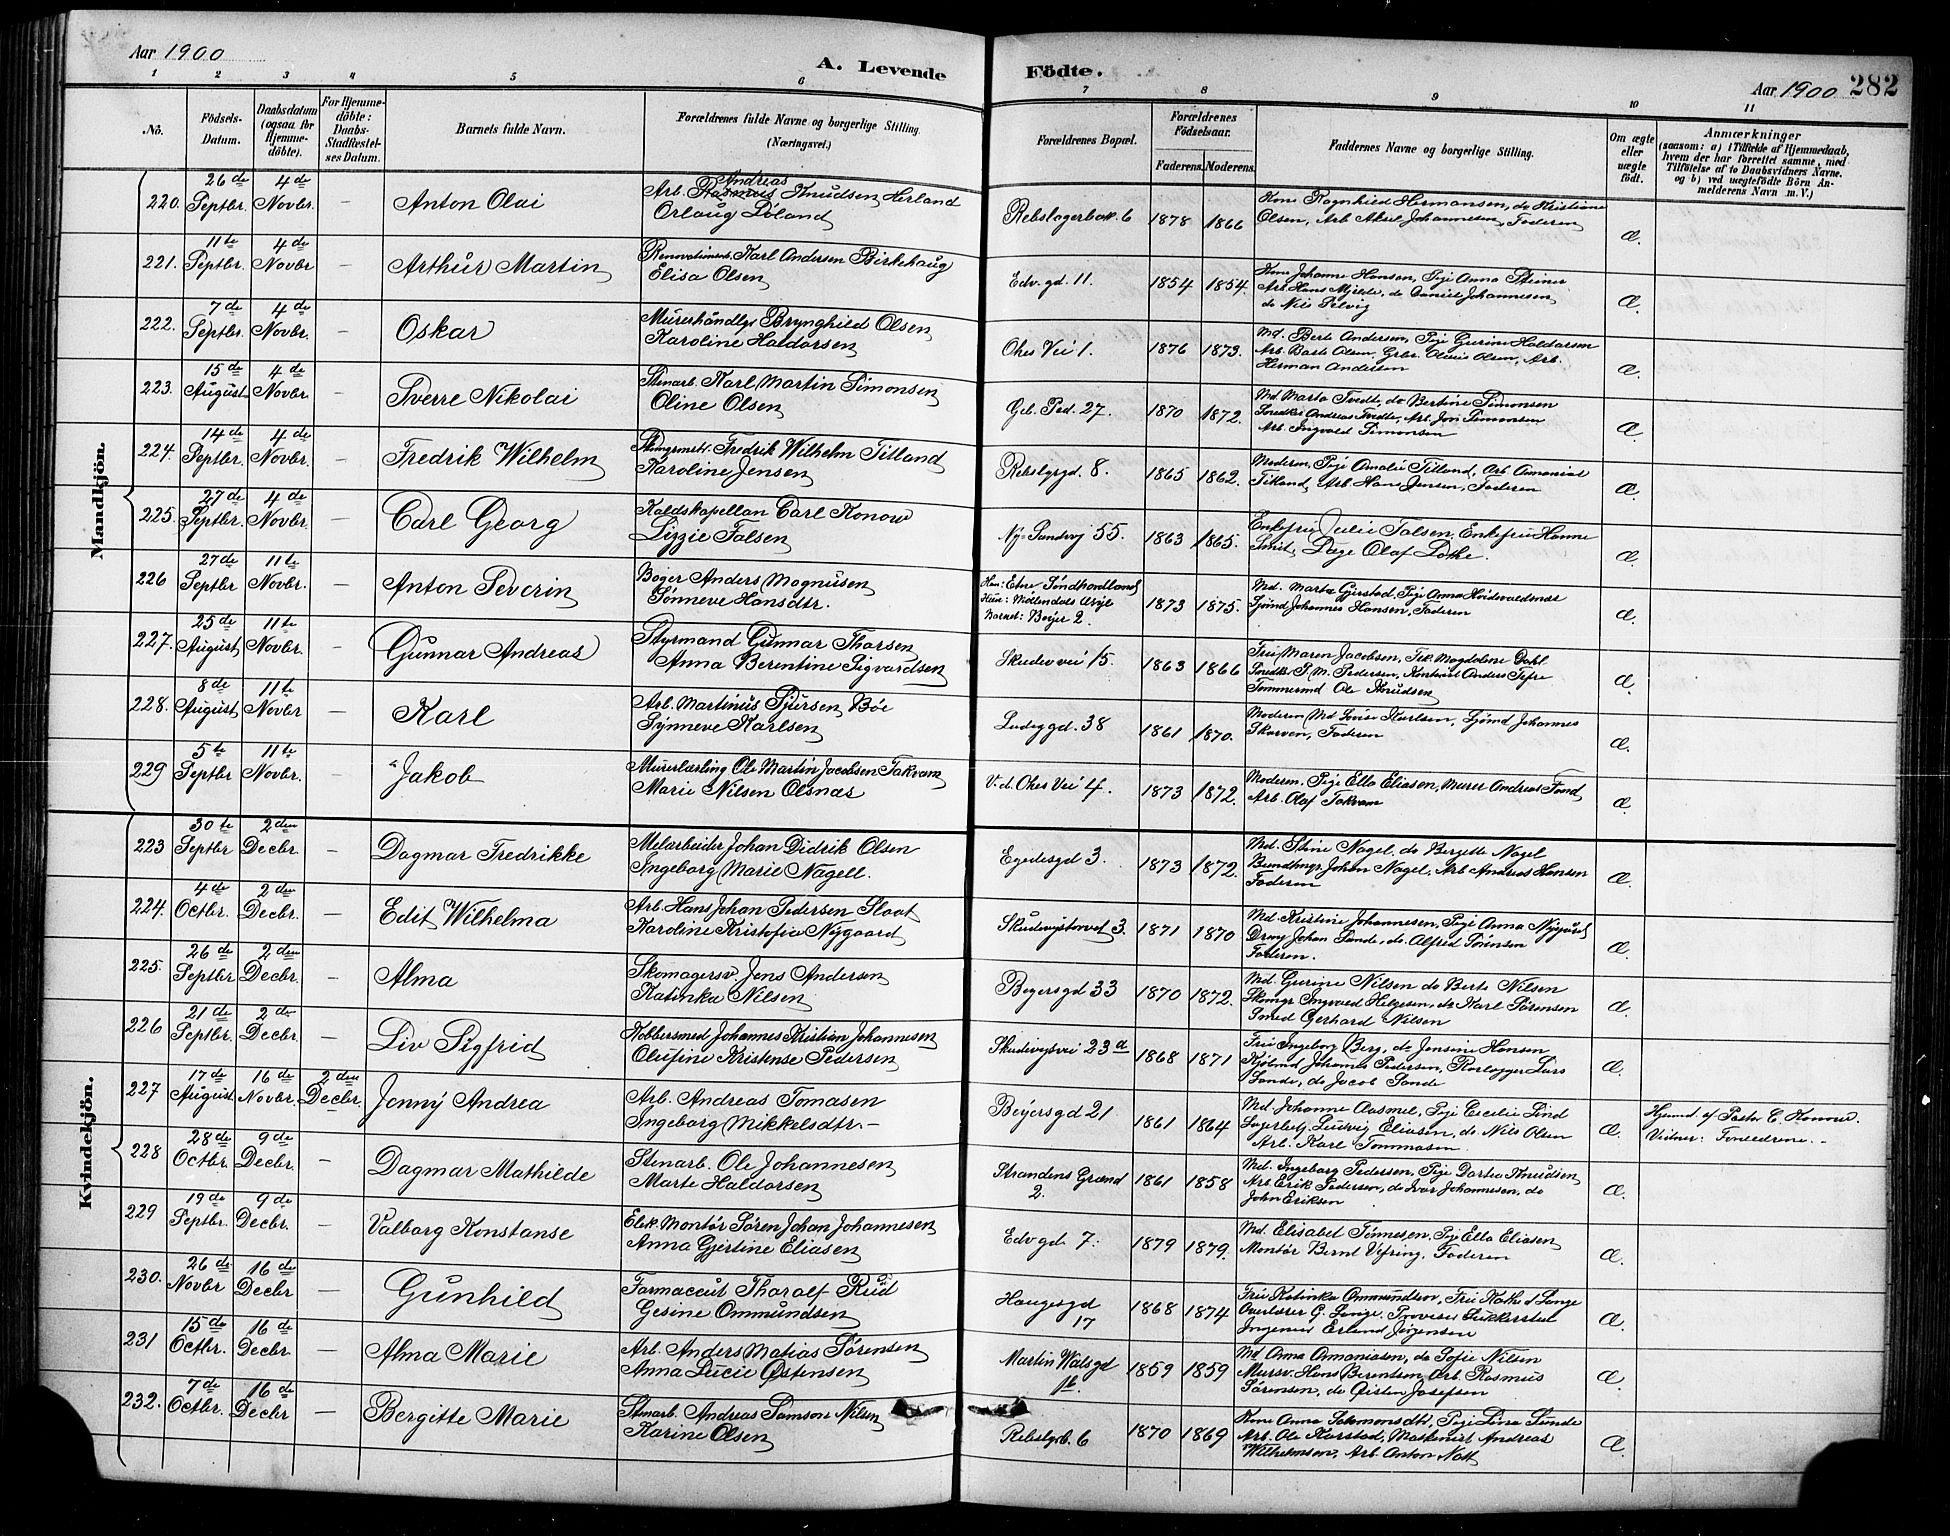 Aar 1900
A. Levende Födte.
Aar 1900 282
1 2 3 4 5 6 7 8 9 10 11
No.
Födsels-Datum.
Daabsdatum (ogsaa for Hjemme-döbte).
For Hjemme-döbte: Daabs-Stadfæstel-ses Datum.
Barnets fulde Navn.
Forældrenes fulde Navne og borgerlige Stilling. (Næringsvei.)
Forældrenes Bopæl.
Forældrenes Födselsaar.
Faderens. Moderens.
Faddernes Navne og borgerlige Stilling.
Om ægte eller uægte født.
Anmærkninger
(saasom: a) i Tilfælde af Hjemmedaab, hvem der har forrettet samme, med Tilföielse af to Daabsvidners Navne. og b) ved uægtefödte Börn An-melderens Navn m. V.)
Mandkjön.
220. 26de Septbr. 4de Novbr. — Anton Olai
Arb. Andreas Knudsen Herland
Orlaug Löland
Rebslagerbak. 6 1878 1866
Kone Ragnhild Hermansen, do Kristiane
Olsen, Arb. Aksel Johannesen, Faderen
Æ.
221. 11te Septbr. 4de Novbr — Arthur Martin
Renovationsm. Karl Andersen Birkehaug
Elisa Olsen
Edv. gd. 11. 1854 1854.
Kone Johanne Hansen, Pige Anna Steiner
Arb. Hans Myrlde, do Daniel Johannesen
do Nils
Æ.
222. 7de Septbr. 4de Novbr. — Oskar
Murerhåndlgr Brynghild Olsen
Karoline Haldorsen
Ohes Vei 1. 1876 1873.
Md. Berte Andersen, Pige Gurine Haldorsen
Arb. Olsen, Olsen, Arb.
Herman Andersen
Æ.
223. 15de August 4de Novbr. — Sverre Nikolai
Stenarb. Karl Martin Simonsen
Oline Olsen
Geb. Ped. 27. 1870 1872.
Md Marta Tvedt, do Bertine Simonsen
Snedker Andreas Tvedte, Arb. Jon Simonsen
Arb. Ingvald Simonsen
Æ.
224. 14de Septbr. 4de Novbr. — Fredrik Wilhelm
Fredrik Wilhelm Titland
Karoline Jensen
Rebslgrgd. 8. 1865 1862.
Moderen, Pige Amalie Titland, Arb.
Titland, Arb. Hans Jensen, Faderen
Æ.
225. 27de Septbr. 4de Novbr. — Carl Georg
Kaldskapellan Carl Konow
Lizzie Falsen
Ny-Sandvj 55. 1863 1865.
Enkefru Julie Falsen, Enkefru Hanne
Smit, Olaf Lothe.
Æ.
226 27de Septbr. 11te Novbr. — Anton Severin
Bager Anders Magnusen
Sønneve Hansdtr.
Han: Etne Söndhordland
Hun: Möllendals
Barnet: Beyer 2. 1873 1875.
Md. Marta Gjerstad, Pige Anna
Sjömd Johannes Hansen, Faderen
Æ.
227. 25de August 11te Novbr. — Gunnar Andreas
Styrmand Gunnar Tharsen
Anna Berentine Sigvardsen
Skudev vei 15. 1863 1866
Fru Maren Jacobsen, Frk. Magdalene Dahl
Snedkr. P. M. Pedersen, Anders
Tømmermd Ole Knudsen
Æ.
228. 8de August 11te Novbr — Karl
Arb. Martinus Sjursen Bøe
Synneve Karlsen
Ladegd. 38 1861 1870.
Moderen, Md Lovise Karlsen, Sjömd Johannes
Skarven, Faderen
Æ.
229 5te Septbr 11te Novbr. — Jakob
Murerlærling Ole Martin Jacobsen Takvam
Marie Nilsen Olsnæs
V. d. Ohes Vei 4. 1873 1872.
Moderen, Pige Ella Eliasen, Murer Andreas
Arb. Olaf Takvam
Æ
Kvindekjön.
223 30te Septbr 2den Decbr. — Dagmar Fredrikke
Melarbeider Johan Didrik Olsen
Ingeborg Marie Nagell.
Egedesgd 3. 1873 1872.
Md. Stine Nagel, do Bergitte Nagel
Johan Nagel, Arb Andreas Hansen
Faderen
Æ.
224. 4de Octbr. 2den Decbr. — Edit Wilhelma
Arb. Hans Johan Pedersen Sloat
Karoline Kristofia Nygaard
Skudevjstorvet 3. 1871 1870
Md. Kristine Johannesen, Pige Anna
Johan Sande, do. Alfred Sørensen
Faderen.
Æ.
225. 26de Septbr. 2den Decbr. — Alma
Skomagersv Jens Andersen
Katinka Nilsen
Beyersgd 33 1870 1872.
Md. Gurine Nilsen do Berte Nilsen
Skomgr Ingvald Helgesen, do Karl Sørensen
Smed Gerhard Nilsen
Æ.
226 21de Septbr. 2de Decbr. — Liv Sigfrid
Kobbersmed Johannes Kristian Johannesen
Olufine Kristense Pedersen
Skudevjsvei 23a 1868 1871
Fru Ingeborg Berg, do Jensine Hansen
Johannes Pedersen, Lars
Sande, do Jacob Sande
Æ.
227 17de August 16de Novbr. 2den Decbr. Jenny Andrea
Arb. Andreas Tomasen
Ingeborg Mikkelsdtr. -
Beyersgd 21 1861 1864
Md Johanne Aasmel, Pige Cecilie Lind
Ludvig Eliasen, do Nils Olsen
Arb. Karl Tommasen
Æ.
Hjemmd. af Pastor C. Konow.
Vidner: Forældrene. -
228 28de Octbr. 9de Decbr. — Dagmar Mathilde
Stenarb. Ole Johannesen
Marte Haldorsen
Strandens Grænd 2. 1861 1858
Md. Ingeborg Pedersen, Pige Dortea Knudsen
Arb Erik Pedersen, do Ivar Johannesen, do
John Eriksen
Æ.
229 19de Septbr. 9de Decbr. — Valborg Konstanse
Elek. Montör Sören Johan Johannesen
Anna Gjertine Eliasen
Edv gd 7. 1879 1879.
Md. Elisabet Tønnesen, Pg Ella Eliasen
Montör Bernt Vefring, Faderen
Æ.
230. 26de Novbr 16de Decbr — Gunhild
Farmaceut Thoralf Rud
Gesine Ommundsen
Haugesgd 17 1868 1874
Fru Katinka Ommundsen, Fru Lange
Overlærer G. Lange, Provisor Sukkerstad
Ingeniør Erland Jørgensen
Æ.
231 15de Octbr. 16de Decbr. — Alma Marie
Arb. Anders Matias Sørensen
Anna Lucie Østensen
Martin Walsgd 1b. 1859 1859
Md Anna Ananiasen, do Sofie Nilsen
Mursv. Hans Berentsen, Arb. Rasmus
Sørensen, do Øisten Josefsen
Æ.
232. 7de Octbr. 16de Decbr — Bergitte Marie
Stenarb. Andreas Samson Nilsen
Karine Olsen
Rebslgrb. 6 1870 1869
Kone Anna Salomonsdtr, Pige Lina Sunde
Arb. Ole Karstad, Maskinist Andreas
Wilhelmsen, Arb. Anton Natt
Æ.